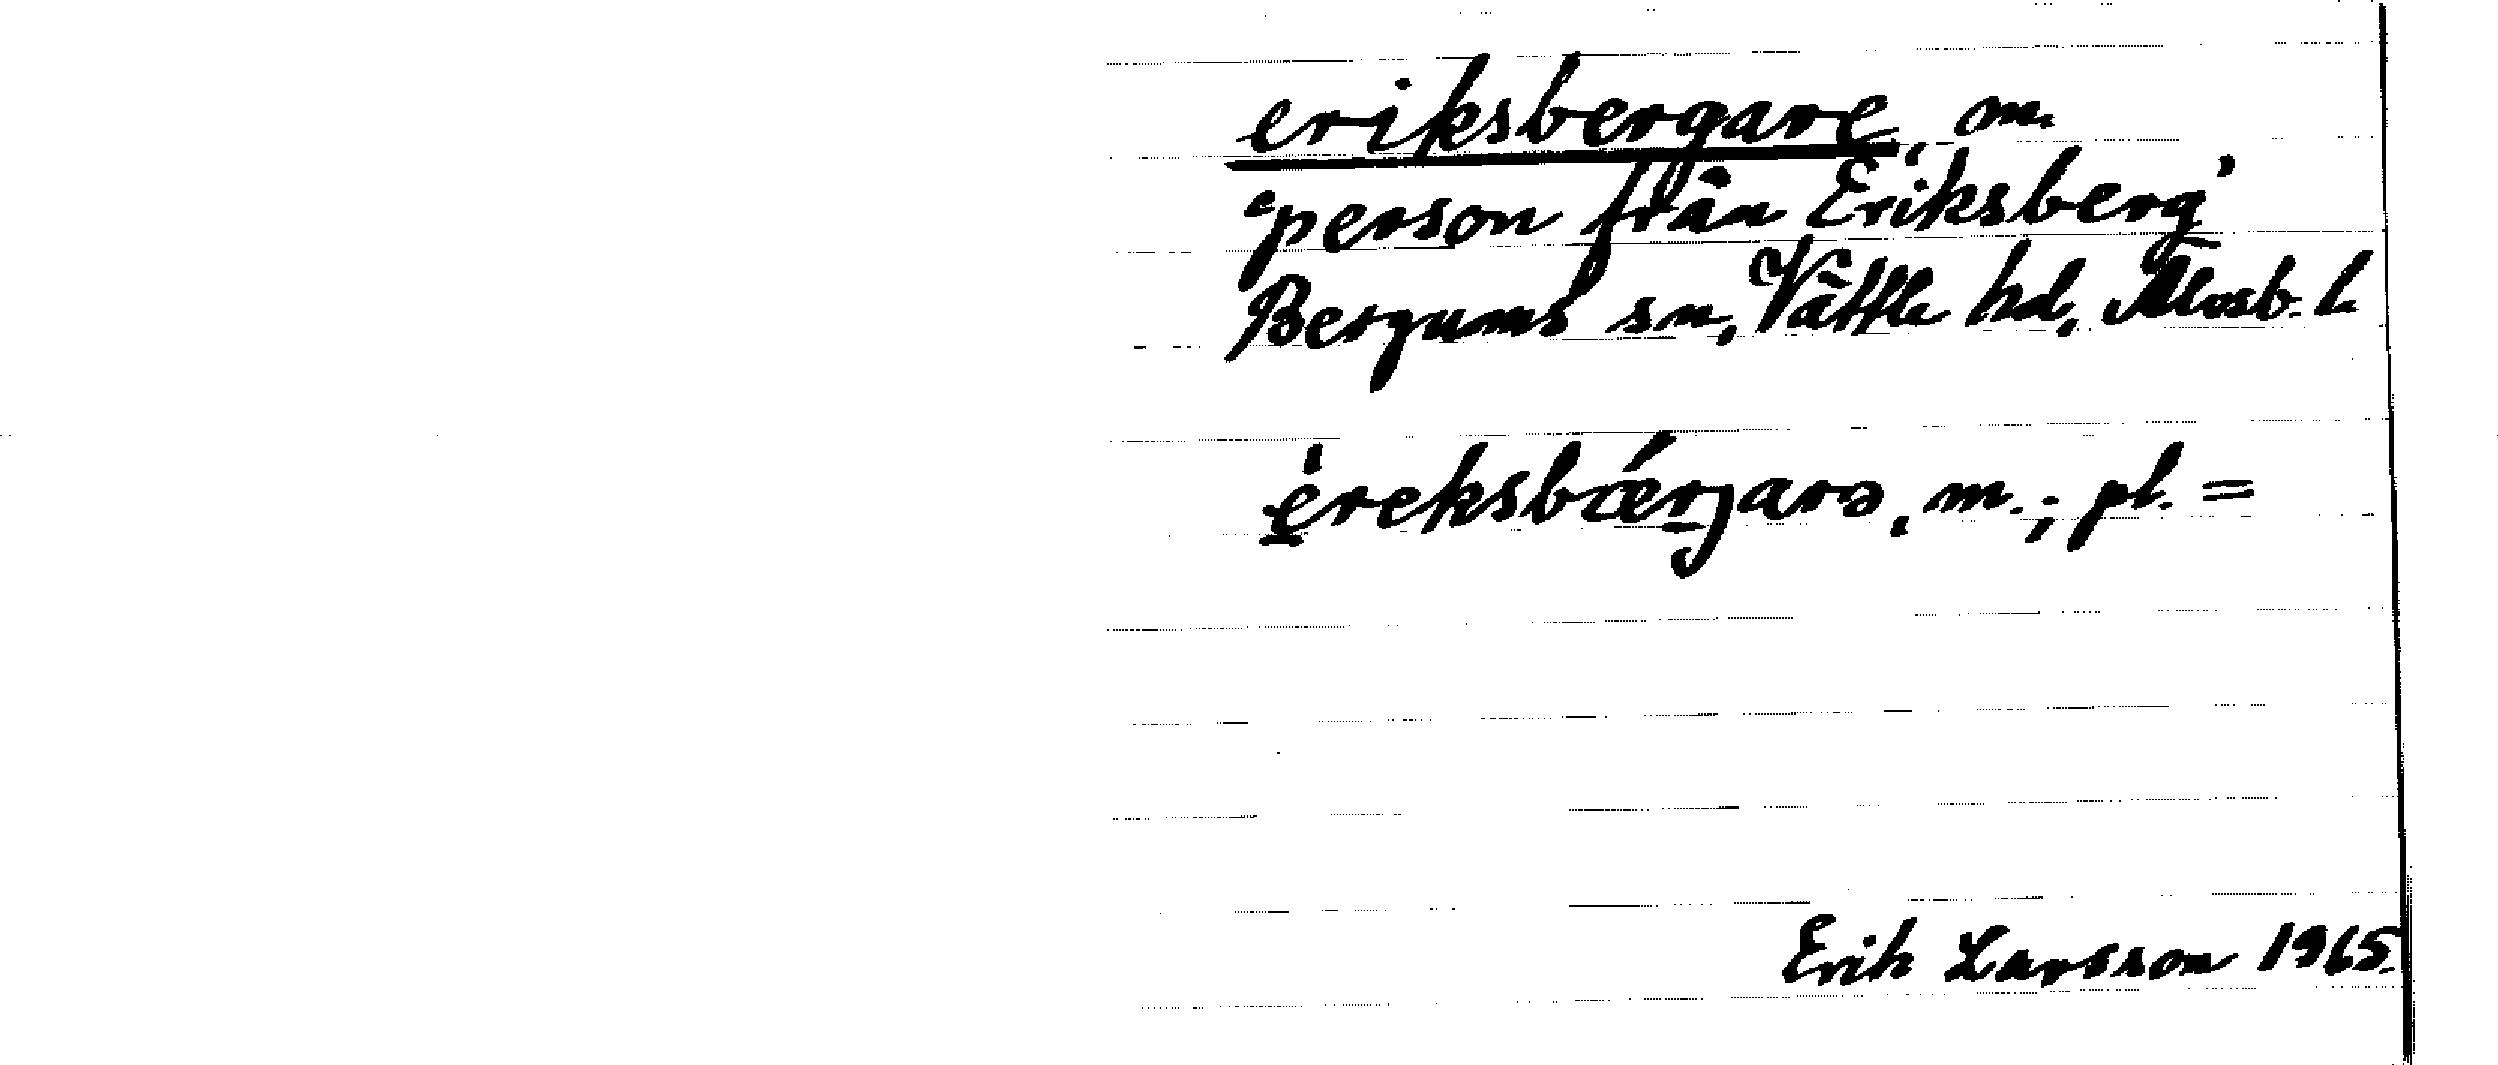 eriksbergare, m.
"person från Eriksberg"
Bergums sn, Vättle hd, Älvsb. l.
èreksbǽrjarə, m.; pl. =
Erik Larsson 1965.